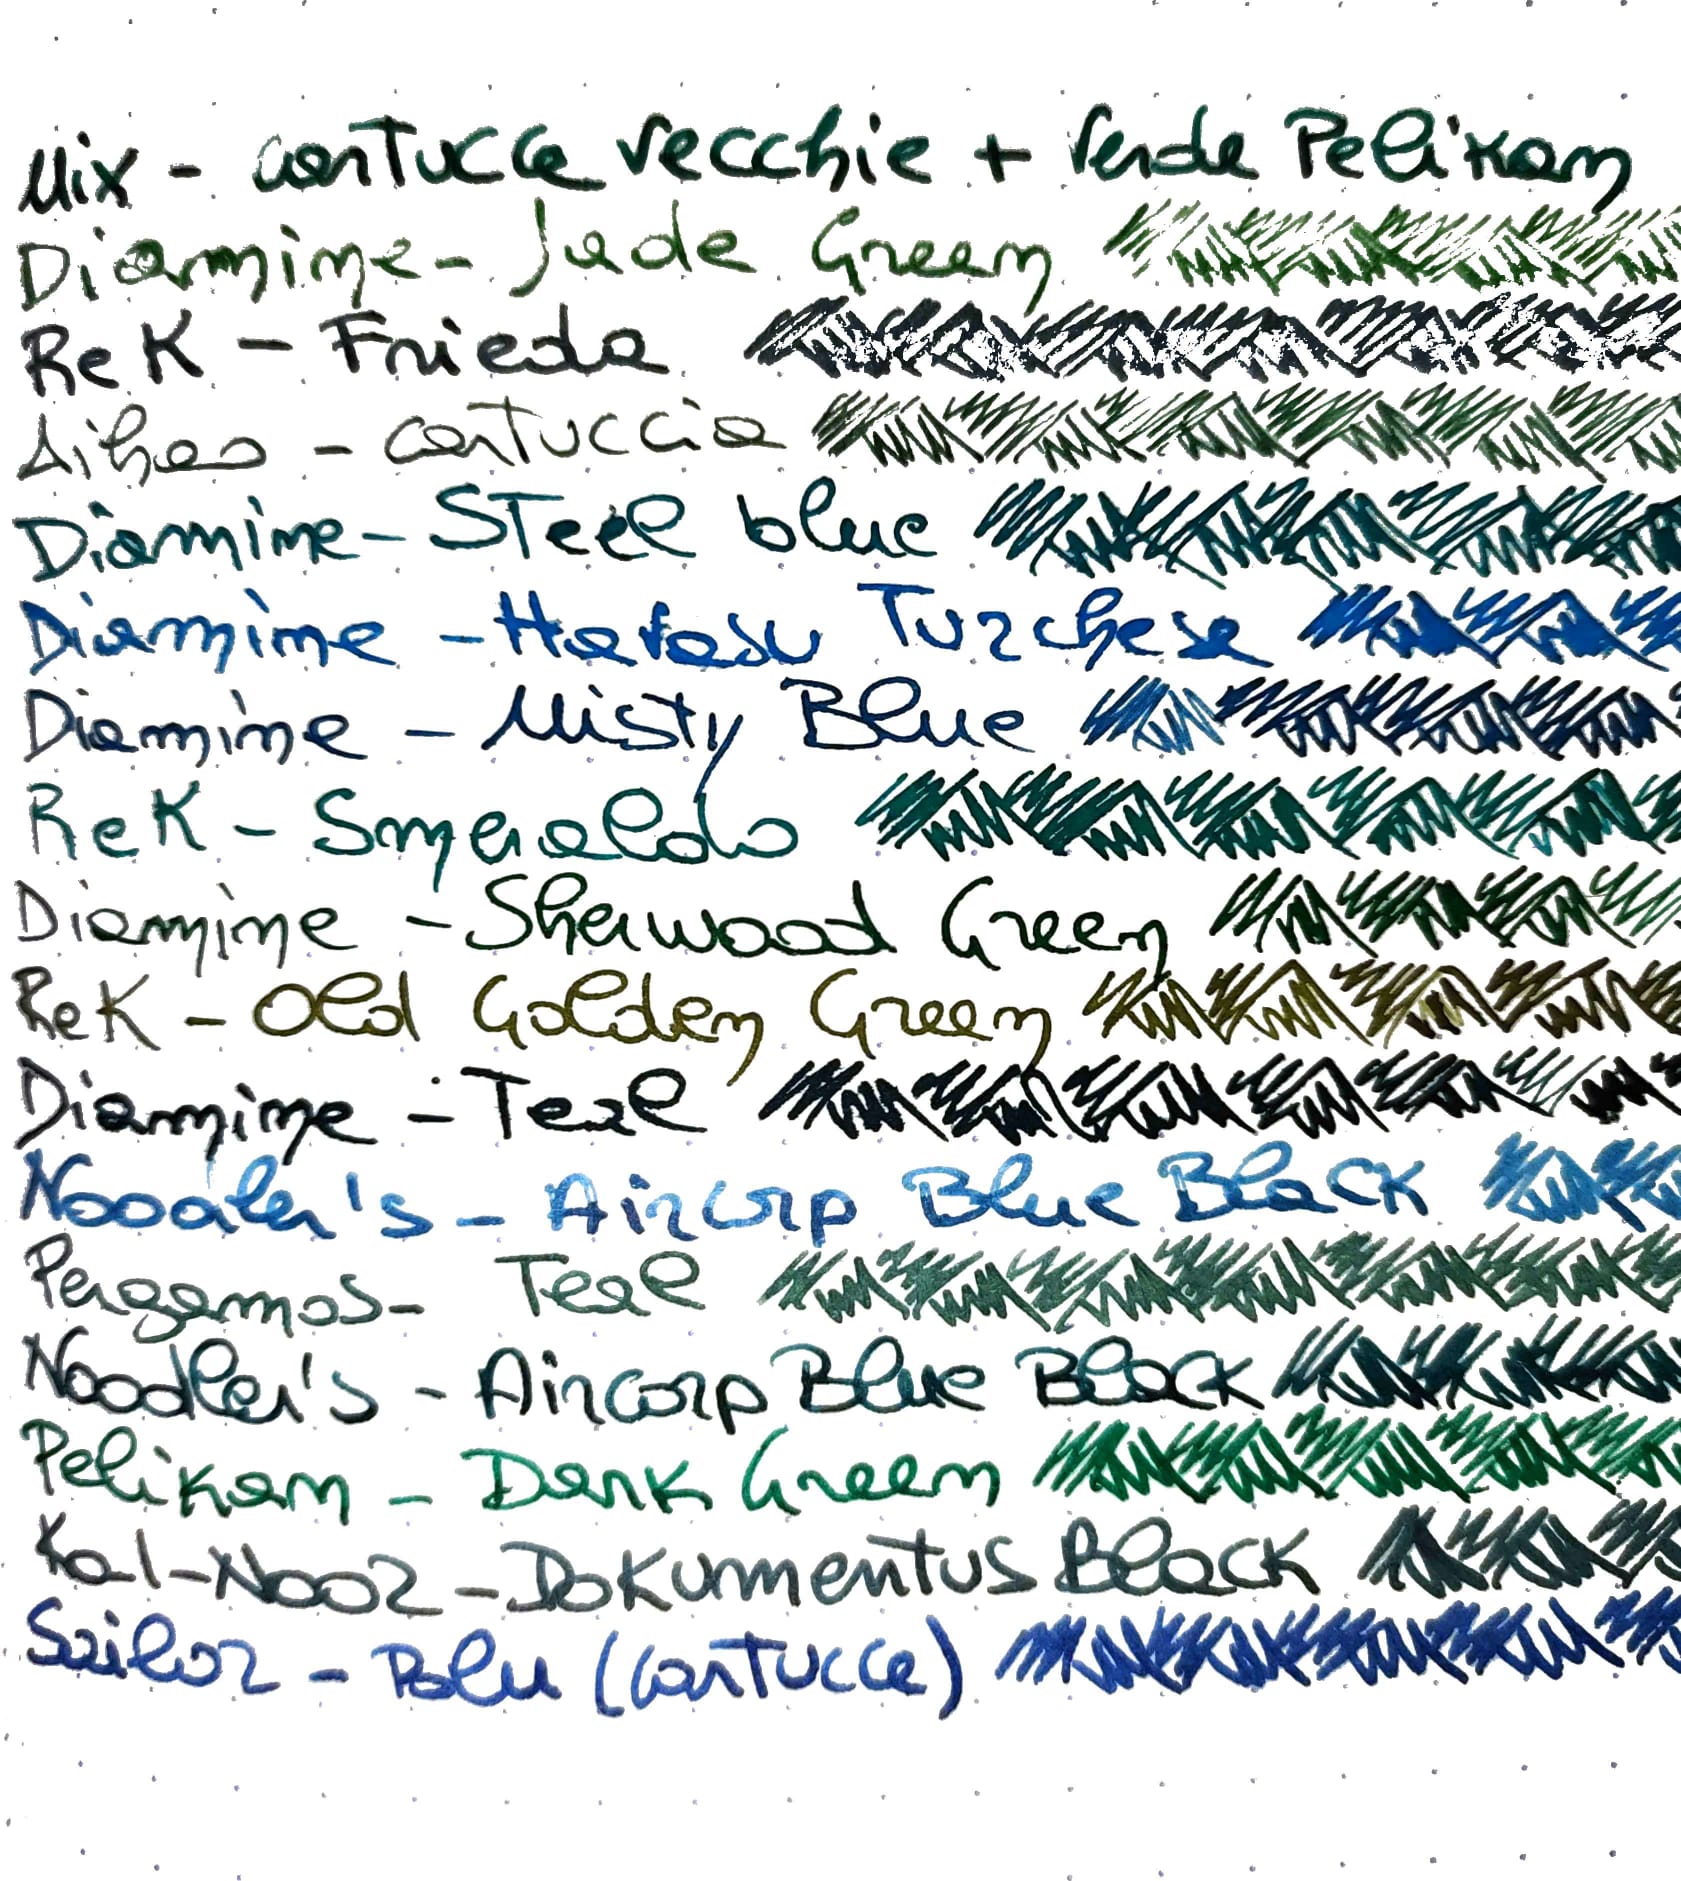 Mix - cartucce vecchie + Verde Pelikan
Diamine - Jade Green
R e K - Frieda
Aihao - cartuccia
Diamine - Steel blue
Diamine - Havasu Turchese
Diamine - Misty Blue
R e K - Smeraldo
Diamine - Sherwood Green
R e K - Old Golden Green
Diamine - Teal
Noodler's - Aircorp Blue Black
Pergamos - Teal
Noodler's - Aircorp Blue Black
Pelikan - Dark Green
Kal-Noor - Dokumentus Black
Sailor - Blu (cartucce)